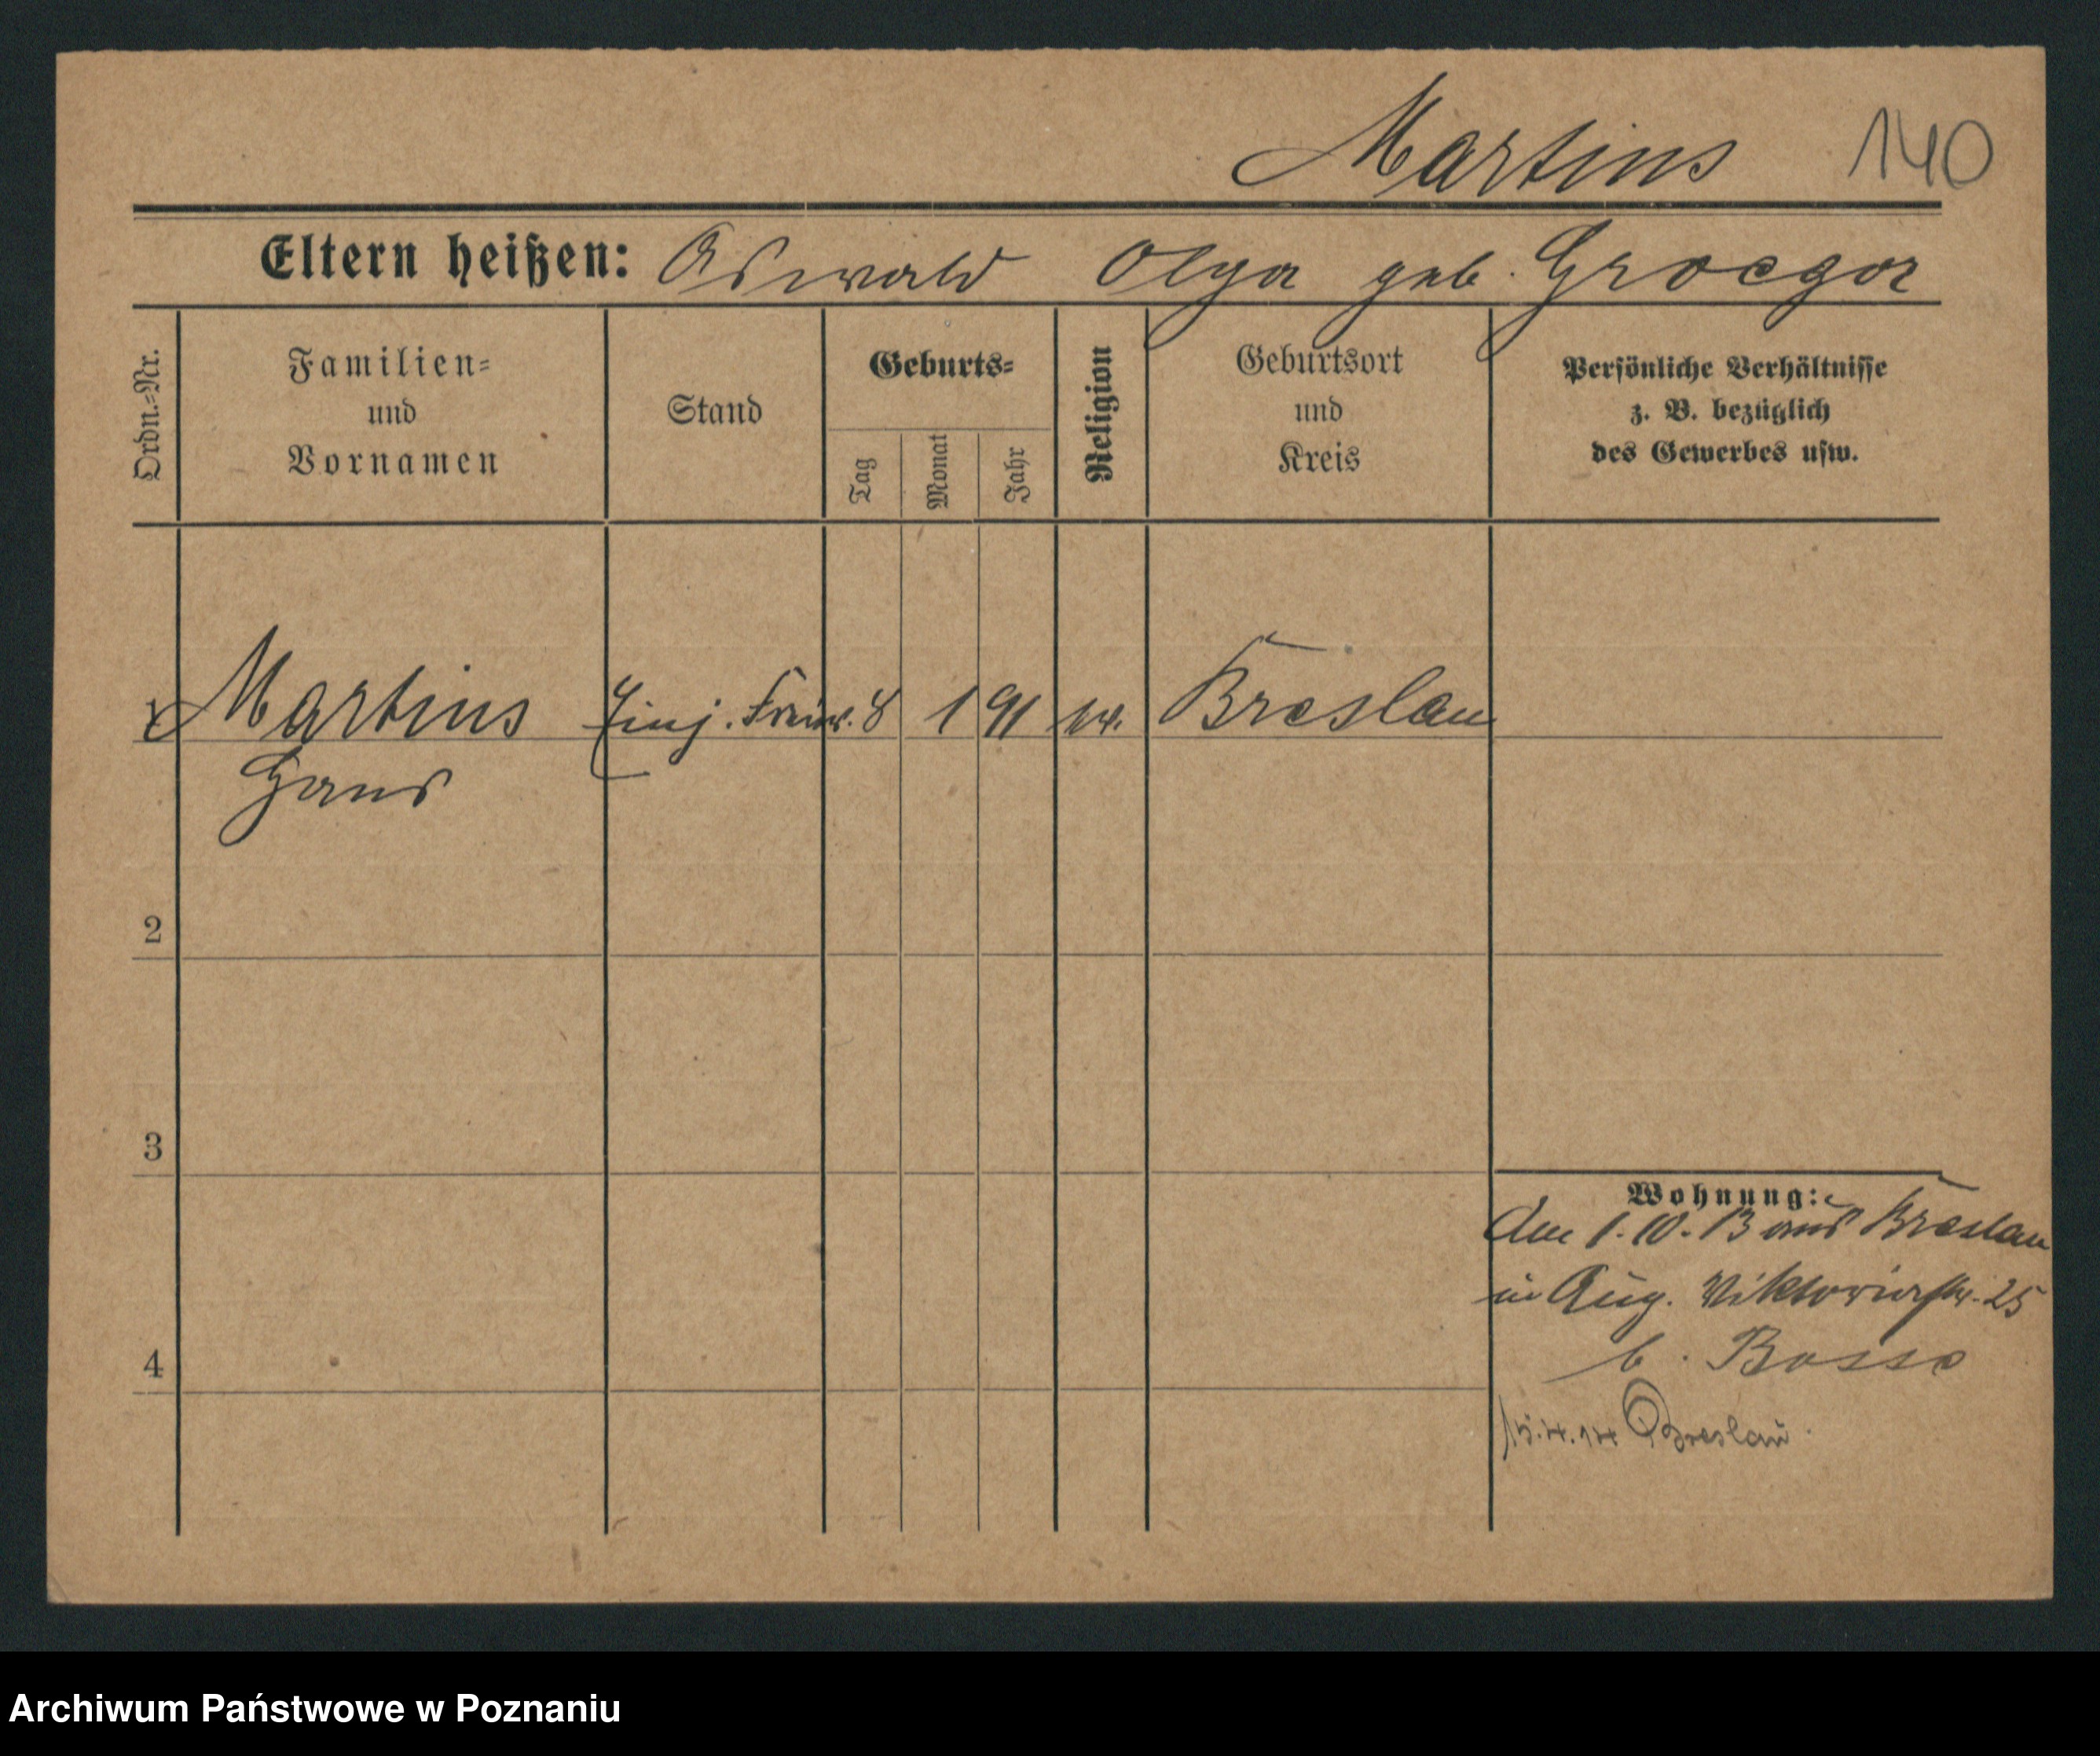 Martins 140
Eltern heißen: Oswald Olga geb. Groeger
Ordn.-Nr.
Familien-
und
Vornamen
Stand
Geburts-
Tag
Monat
Jahr
Religion
Geburtsort
und
Kreis
Persönliche Verhältnisse
z. B. bezüglich
des Gewerbes usw.
1 Martins Einj. Freiw. 8 1 91 ev. Breslau
Hans
2
3
4
Wohnung:
Am 1.10.13 aus Breslau
in Aug. Viktoriastr. 25
b. Bosse
15.4.14 Breslau
Archiwum Państwowe w Poznaniu